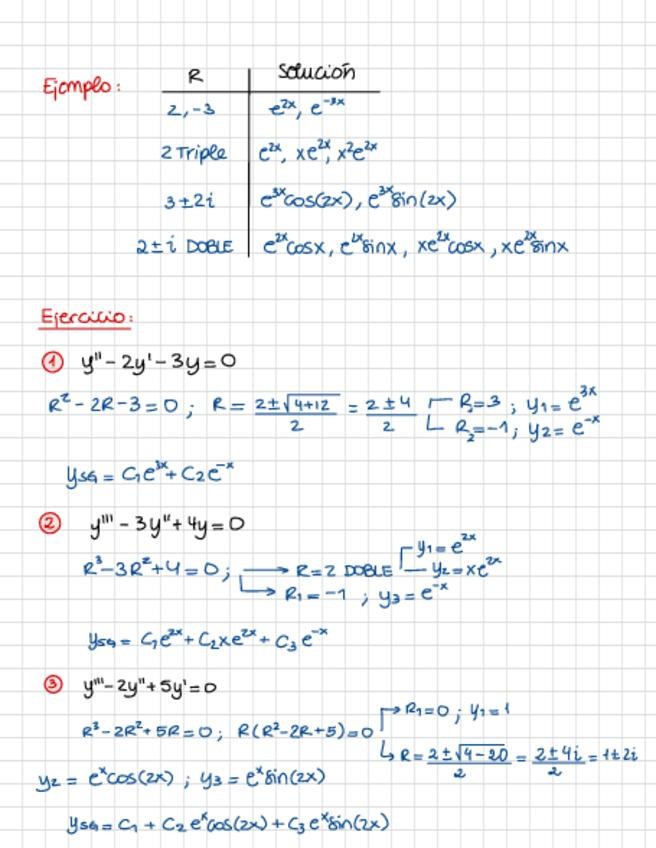 Ejemplo:
R | Solución
2, -3 | e^{2x}, e^{-3x}
2 Triple | e^{2x}, xe^{2x}, x²e^{2x}
3 ± 2i | e^{3x}cos(2x), e^{3x}sin(2x)
2 ± i DOBLE | e^{2x}cosx, e^{2x}sinx, xe^{2x}cosx, xe^{2x}sinx
Ejercicio:
① y'' - 2y' - 3y = 0
R² - 2R - 3 = 0 ; R = (2 ± √(4+12))/2 = (2 ± 4)/2 R₁=3 ; y1 = e^{3x}
R₂=-1 ; y2 = e^{-x}
ySG = C1e^{3x} + C2e^{-x}
② y''' - 3y'' + 4y = 0
y1 = e^{2x}
R³ - 3R² + 4 = 0 ; → R = 2 DOBLE y2 = xe^{2x}
→ R1 = -1 ; y3 = e^{-x}
ySG = C1e^{2x} + C2xe^{2x} + C3e^{-x}
③ y''' - 2y'' + 5y' = 0
R1 = 0 ; y1 = 1
R³ - 2R² + 5R = 0 ; R(R² - 2R + 5) = 0
R = (2 ± √(4-20))/2 = (2 ± 4i)/2 = 1 ± 2i
y2 = e^x cos(2x) ; y3 = e^x sin(2x)
ySG = C1 + C2 e^x cos(2x) + C3 e^x sin(2x)